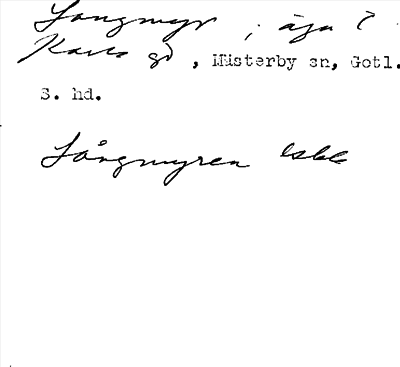 Långmyr, äga t
Karls gd, Mästerby sn, Gotl.
S. hd.
Långmyren